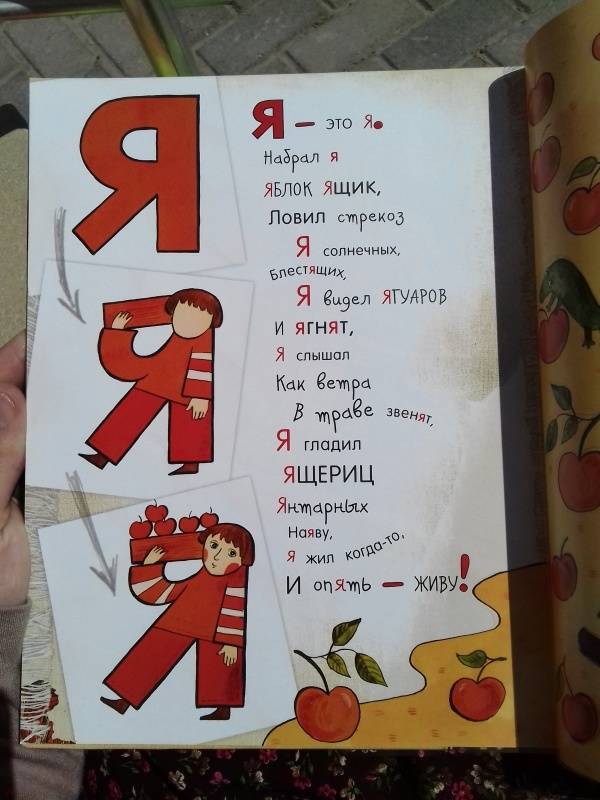 Я
Я – это Я.
Набрал я
ЯБЛОК ЯЩИК,
Ловил стрекоз
Я солнечных,
Блестящих,
Я видел ЯГУАРОВ
И ЯГНЯТ,
Я слышал
Как ветра
В траве звенят,
Я гладил
ЯЩЕРИЦ
Янтарных
Наяву,
Я жил когда-то,
И опять – ЖИВУ!